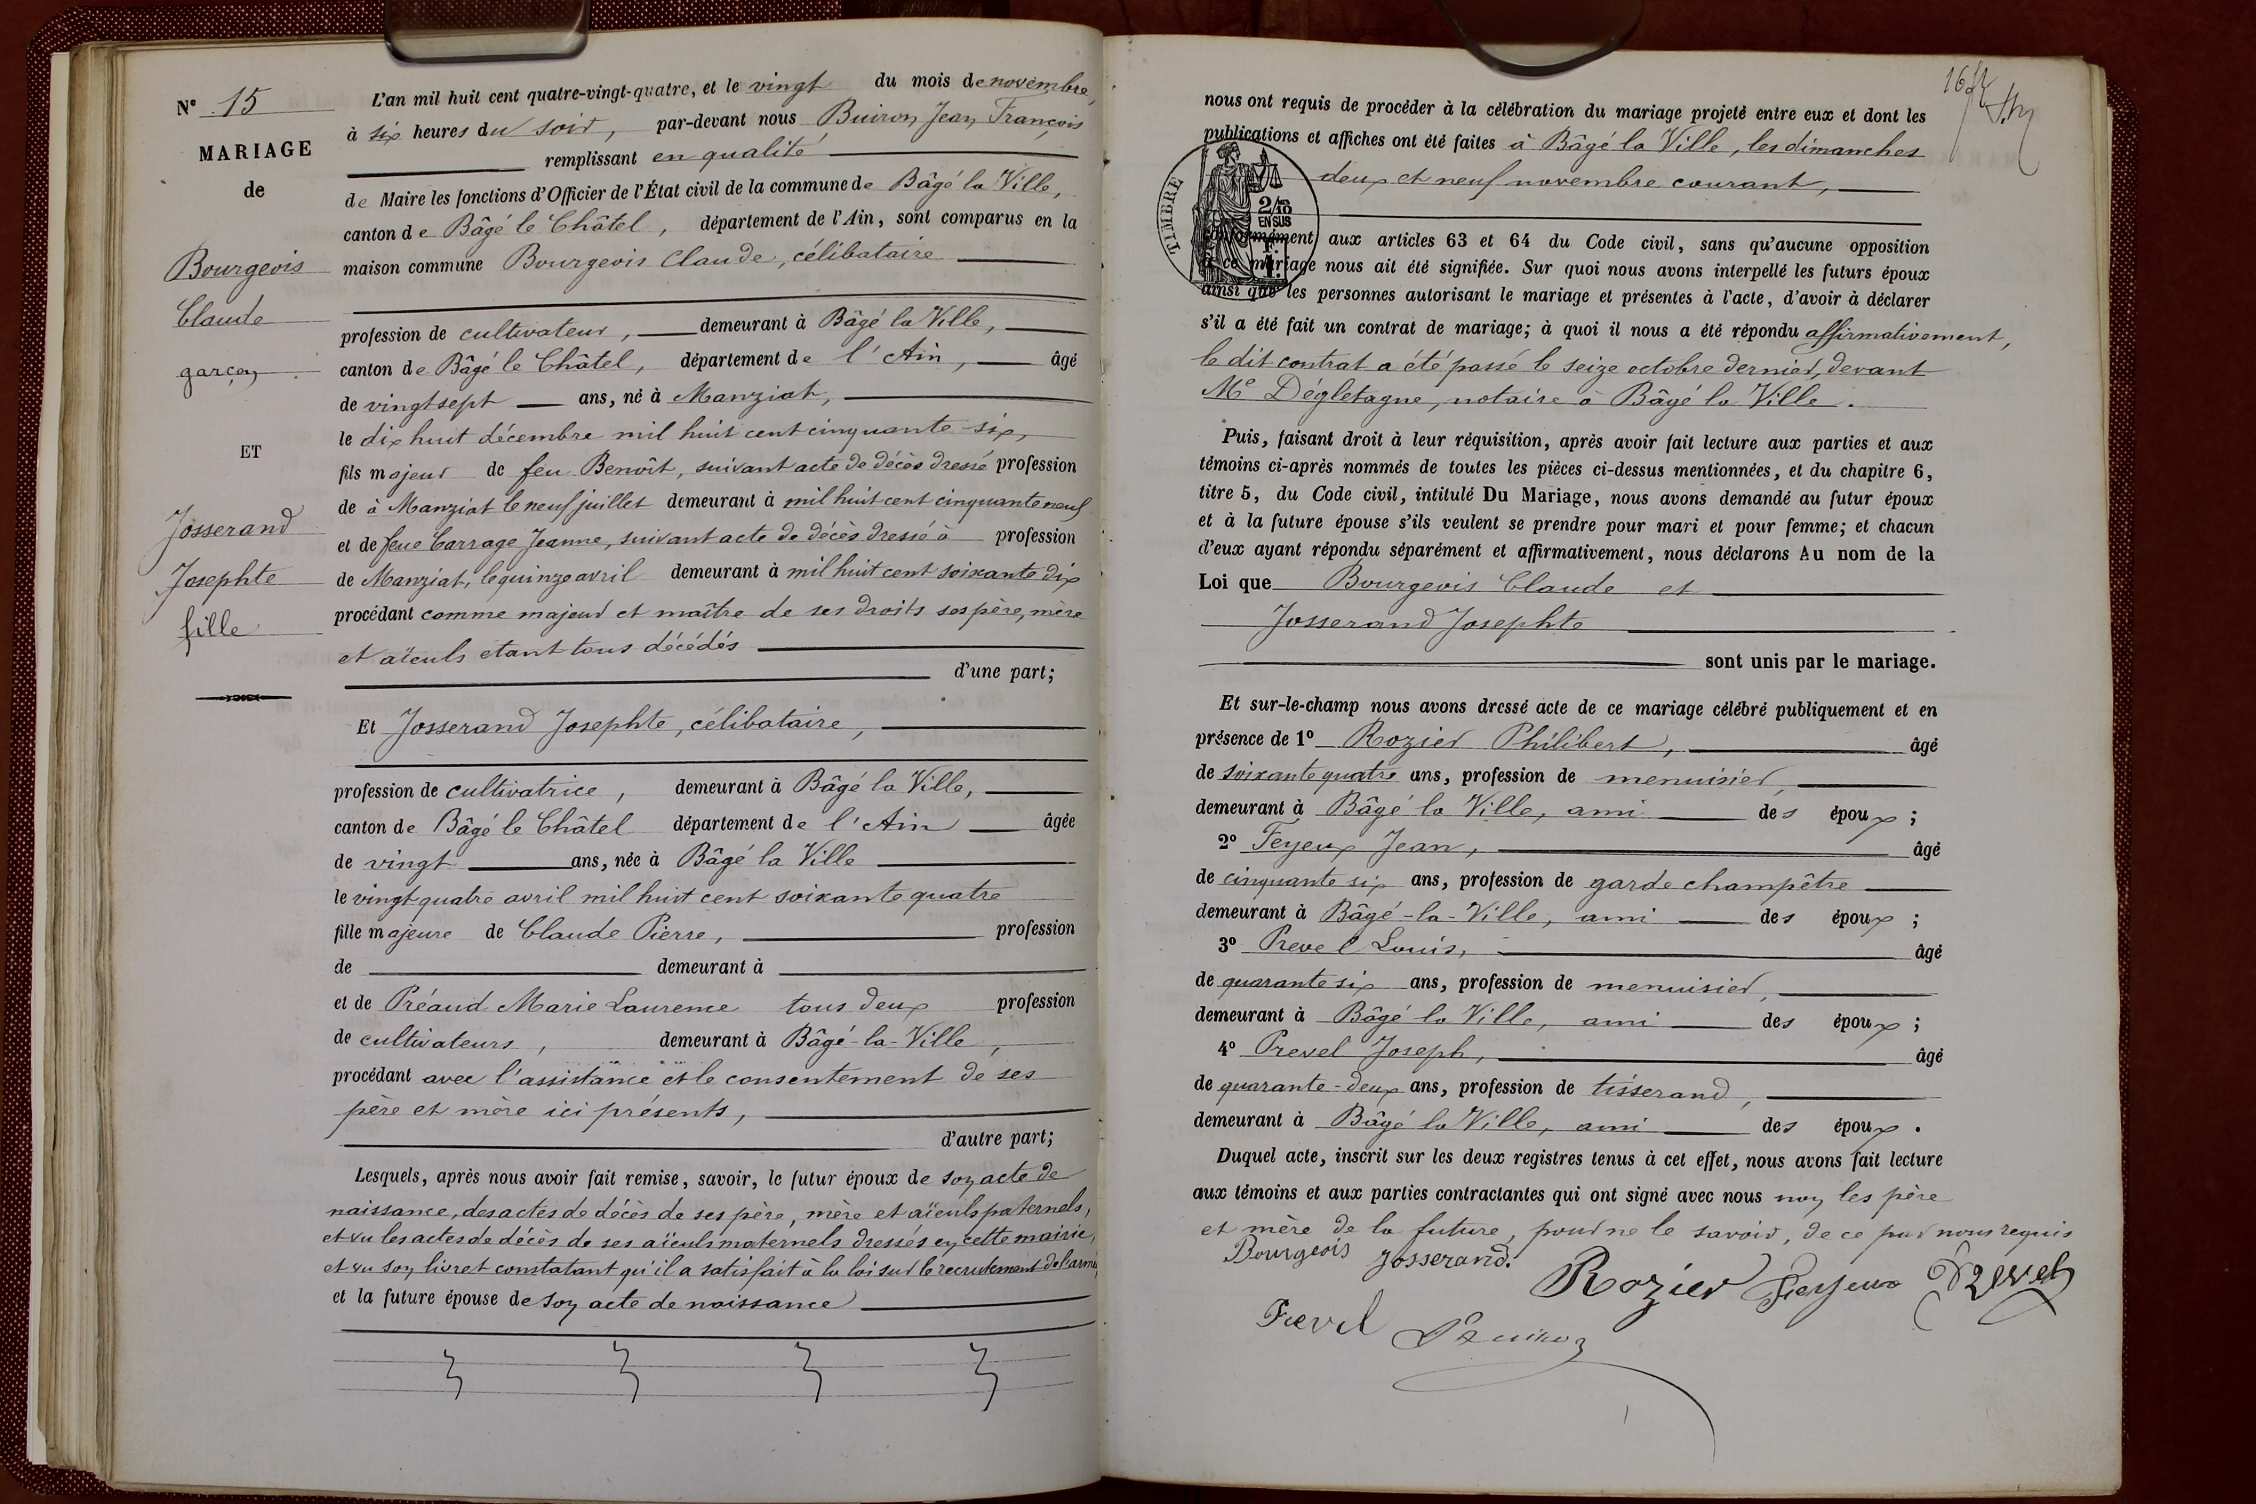 N° 15
MARIAGE
de
Bourgeois
Claude
garçon
ET
Josserand
Josephte
fille
L'an mil huit cent quatre-vingt-quatre, et le vingt du mois de novembre,
à six heures du soir, par-devant nous Buiron Jean François
remplissant en qualité
de Maire les fonctions d'Officier de l'État civil de la commune de Bâgé la Ville,
canton de Bâgé le Châtel, département de l'Ain, sont comparus en la
maison commune Bourgeois Claude, célibataire
profession de cultivateur, demeurant à Bâgé la Ville,
canton de Bâgé le Châtel, département de l'Ain, âgé
de vingt sept ans, né à Manziat,
le dix huit décembre mil huit cent cinquante six,
fils majeur de feu Benoît, suivant acte de décès dressé profession
de à Manziat le neuf juillet demeurant à mil huit cent cinquante neuf
et de feue Carrage Jeanne, suivant acte de décès dressé à profession
de Manziat, le quinze avril demeurant à mil huit cent soixante dix
procédant comme majeur et maître de ses droits ses père, mère
et aïeuls etant tous décédés
d'une part;
Et Josserand Josephte, célibataire,
profession de cultivatrice, demeurant à Bâgé la Ville,
canton de Bâgé le Châtel département de l'Ain âgée
de vingt ans, née à Bâgé la Ville
le vingt quatre avril mil huit cent soixante quatre
fille majeure de Claude Pierre, profession
de demeurant à
et de Préaud Marie Laurence tous deux profession
de cultivateurs, demeurant à Bâgé-la-Ville,
procédant avec l'assistance et le consentement de ses
père et mère ici présents,
d'autre part;
Lesquels, après nous avoir fait remise, savoir, le futur époux de son acte de
naissance, des actes de décès de ses père, mère et aïeuls paternels,
et vu les actes de décès de ses aïeuls maternels dressés en cette mairie,
et vu son livret constatant qu'il a satisfait à la loi sur le recrutement de l'armée,
et la future épouse de son acte de naissance
nous ont requis de procéder à la célébration du mariage projeté entre eux et dont les
publications et affiches ont été faites à Bâgé la Ville, les dimanches
deux et neuf novembre courant,
TIMBRE
2/10
EN SUS
conformément aux articles 63 et 64 du Code civil, sans qu'aucune opposition
à ce mariage nous ait été signifiée. Sur quoi nous avons interpellé les futurs époux
ainsi que les personnes autorisant le mariage et présentes à l'acte, d'avoir à déclarer
s'il a été fait un contrat de mariage; à quoi il nous a été répondu affirmativement,
le dit contrat a été passé le seize octobre dernier, devant
Me Dégletagne, notaire à Bâgé la Ville.
Puis, faisant droit à leur réquisition, après avoir fait lecture aux parties et aux
témoins ci-après nommés de toutes les pièces ci-dessus mentionnées, et du chapitre 6,
titre 5, du Code civil, intitulé Du Mariage, nous avons demandé au futur époux
et à la future épouse s'ils veulent se prendre pour mari et pour femme; et chacun
d'eux ayant répondu séparément et affirmativement, nous déclarons Au nom de la
Loi que Bourgeois Claude et
Josserand Josephte
sont unis par le mariage.
Et sur-le-champ nous avons dressé acte de ce mariage célébré publiquement et en
présence de 1° Rozier Philibert, âgé
de soixante quatre ans, profession de menuisier,
demeurant à Bâgé la Ville, ami des époux;
2° Feyeux Jean, âgé
de cinquante six ans, profession de garde champêtre
demeurant à Bâgé-la-Ville, ami des époux;
3° Prevel Louis, âgé
de quarante six ans, profession de menuisier,
demeurant à Bâgé la Ville, ami des époux;
4° Prevel Joseph, âgé
de quarante-deux ans, profession de tisserand,
demeurant à Bâgé la Ville, ami des époux.
Duquel acte, inscrit sur les deux registres tenus à cet effet, nous avons fait lecture
aux témoins et aux parties contractantes qui ont signé avec nous non les père
et mère de la future, pour ne le savoir, de ce par nous requis
Bourgeois Josserand.
Rozier Feyeux Prevel
Prevel Buiron